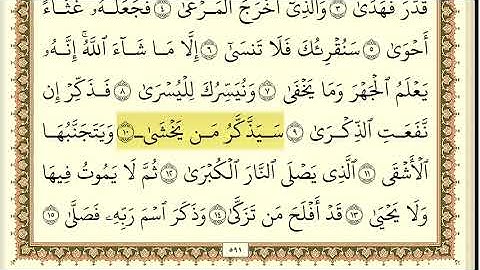 قَدَّرَ فَهَدَىٰ ٣ وَالَّذِىٓ أَخْرَجَ الْمَرْعَىٰ ٤ فَجَعَلَهُۥ غُثَآءً
أَحْوَىٰ ٥ سَنُقْرِئُكَ فَلَا تَنسَىٰٓ ٦ إِلَّا مَا شَآءَ اللَّهُ ۚ إِنَّهُۥ
يَعْلَمُ الْجَهْرَ وَمَا يَخْفَىٰ ٧ وَنُيَسِّرُكَ لِلْيُسْرَىٰ ٨ فَذَكِّرْ إِن
نَّفَعَتِ الذِّكْرَىٰ ٩ سَيَذَّكَّرُ مَن يَخْشَىٰ ١٠ وَيَتَجَنَّبُهَا
الْأَشْقَى ١١ الَّذِى يَصْلَى النَّارَ الْكُبْرَىٰ ١٢ ثُمَّ لَا يَمُوتُ فِيهَا
وَلَا يَحْيَىٰ ١٣ قَدْ أَفْلَحَ مَن تَزَكَّىٰ ١٤ وَذَكَرَ اسْمَ رَبِّهِۦ فَصَلَّىٰ ١٥
٥٩١